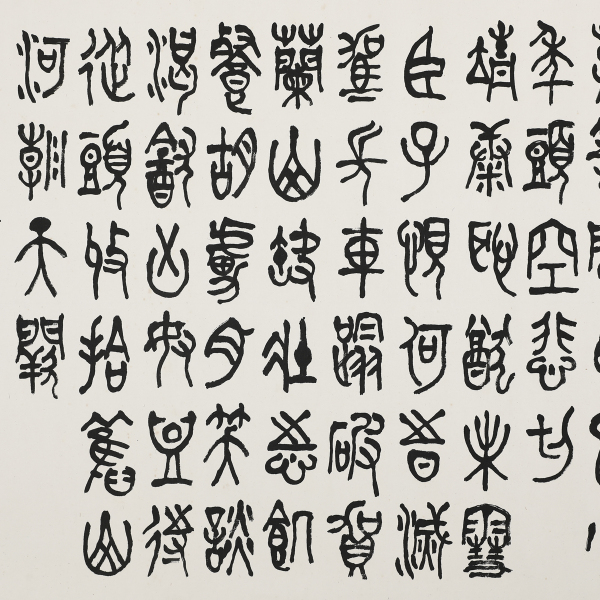 年頭空悲切
靖康恥猶未雪
臣子恨何時滅
駕長車踏破賀
蘭山缺壯志飢
餐胡虜肉笑談
渴飲匈奴血待
從頭收拾舊山
河朝天闕